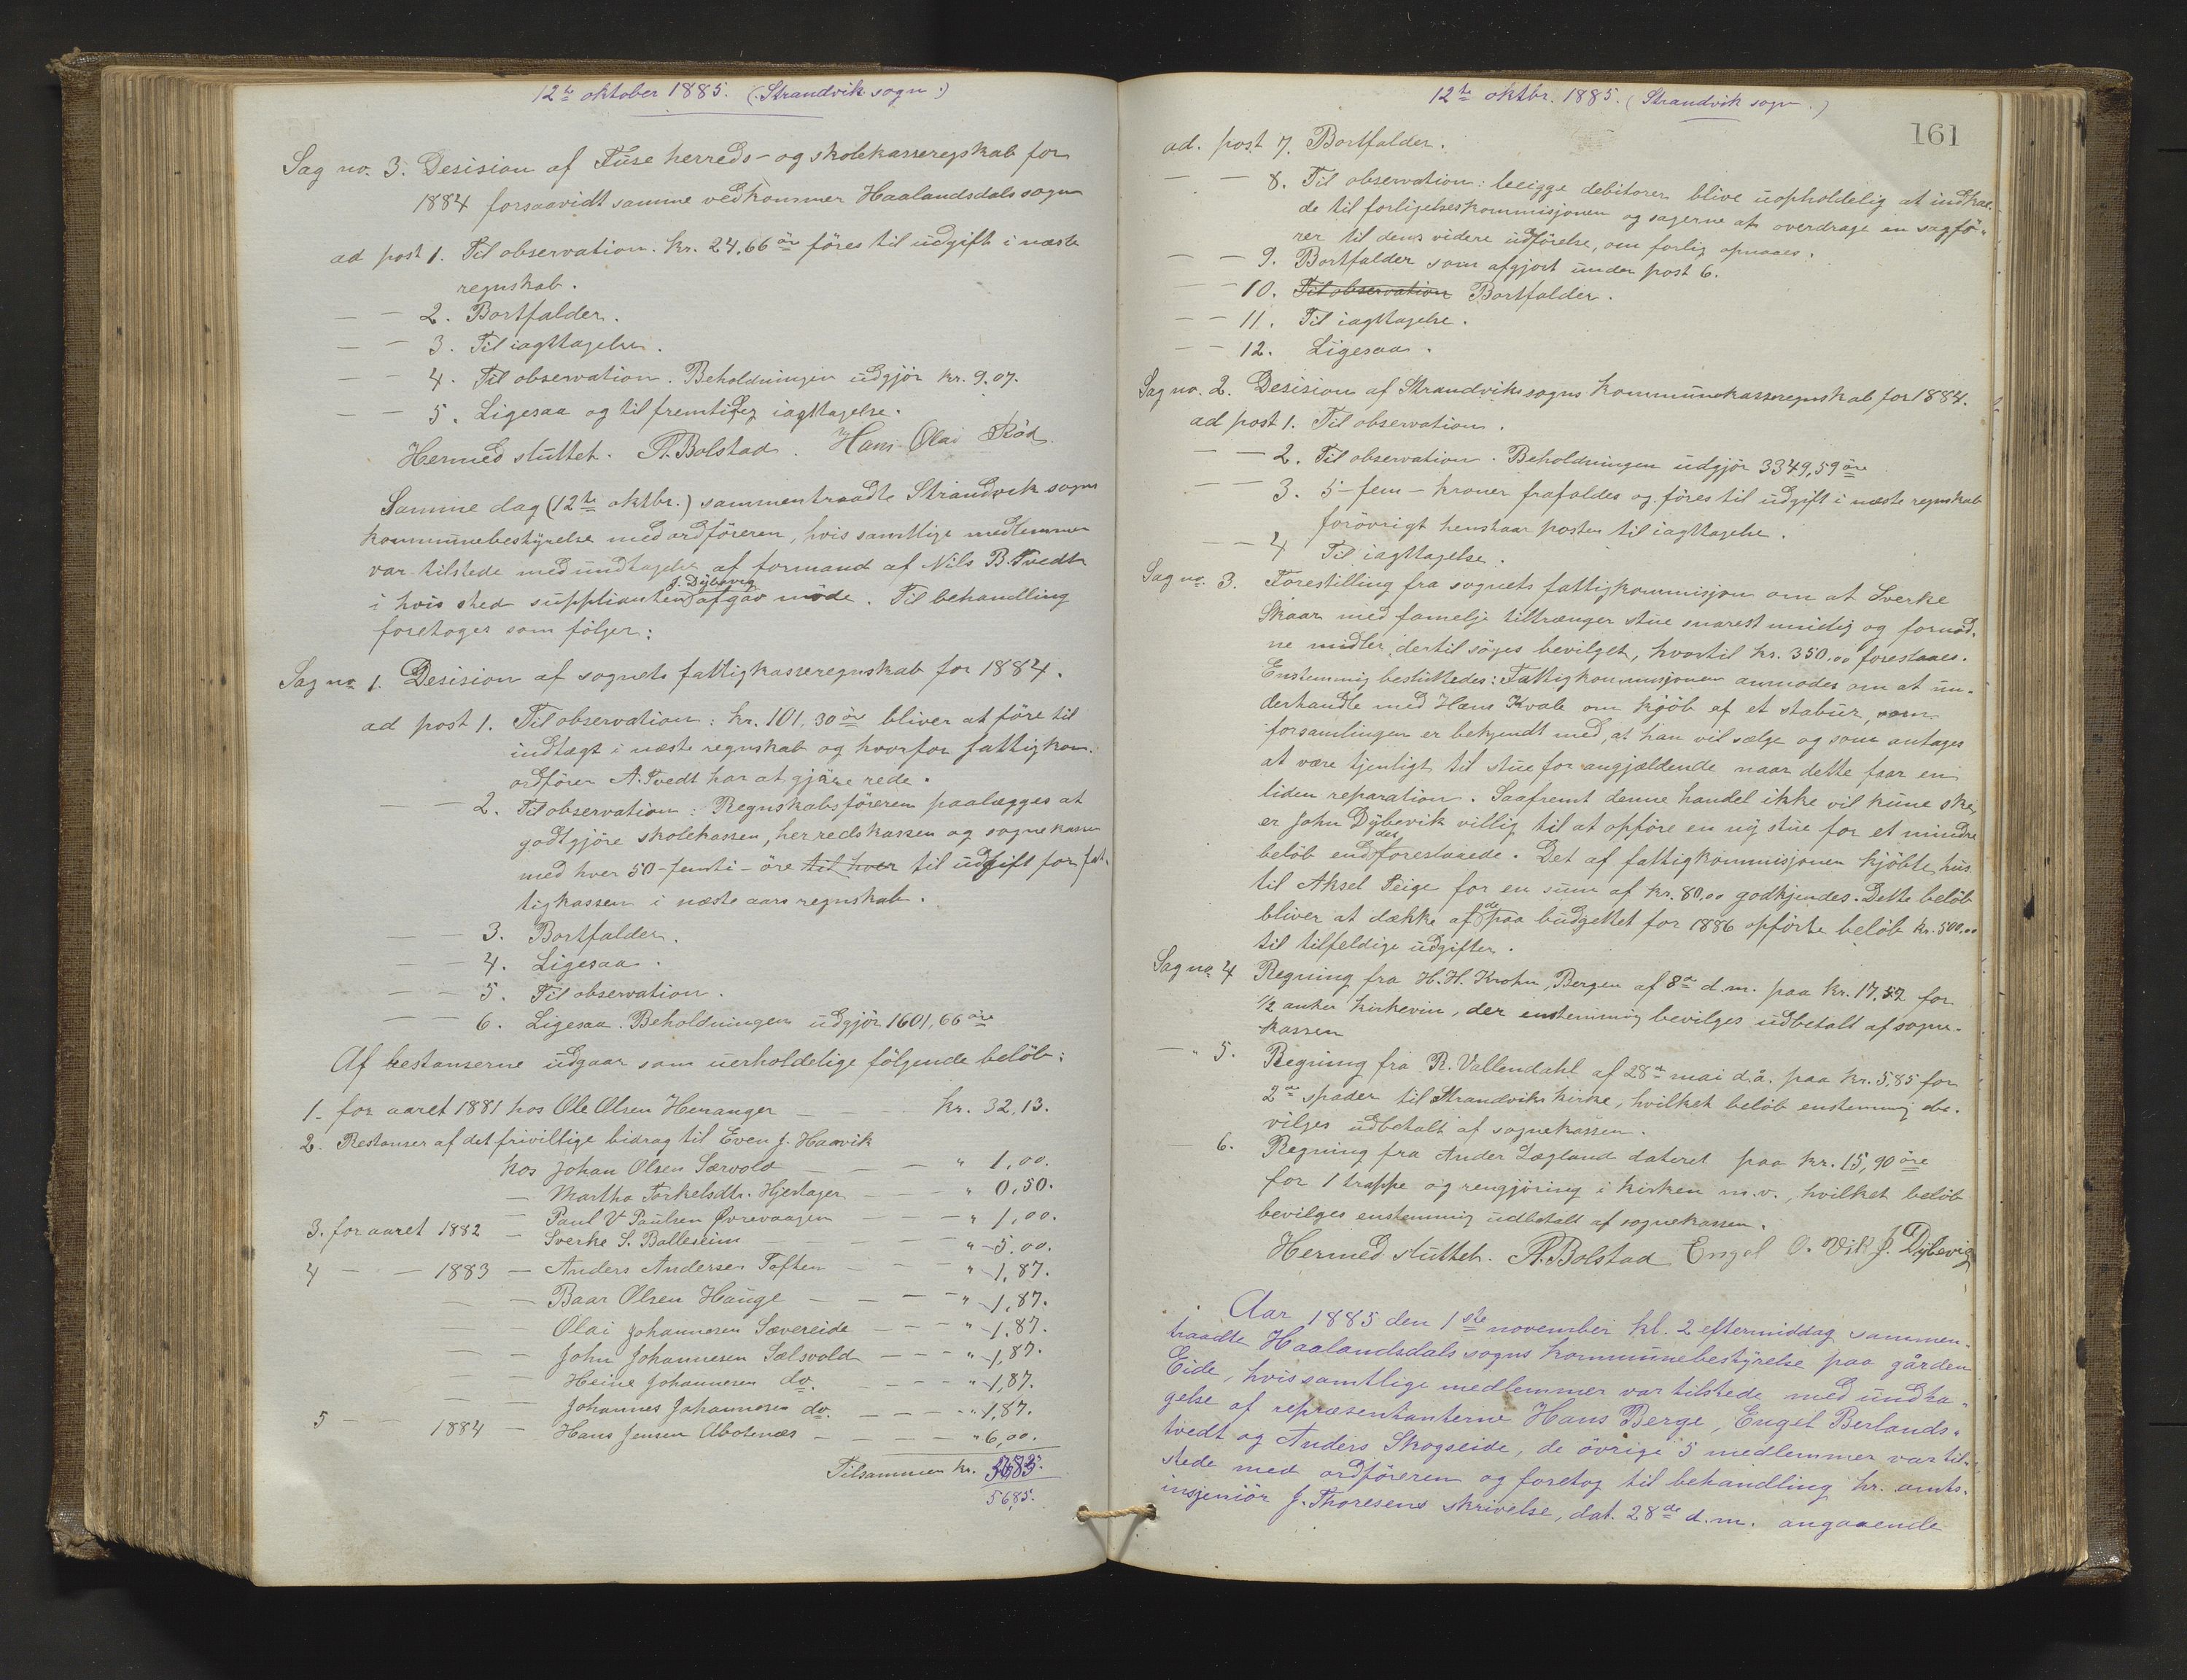 12te oktober 1885. (Strandvik sogn.)
Sag no. 3. Desision af Fuse herreds- og skolekasseregskab for
1884 forsaavidt samme vedkommer Haalandsdals sogn
ad post 1. Til observation. Kr. 24,66 öre föres til udgift i næste
regnskab.
— — 2. Bortfalder.
— — 3. Til iagttagelse.
— — 4. Til observation. Beholdningen udgjör kr. 9,07.
— — 5. Ligesaa og til fremtidig iagttagelse.
Hermed sluttet. A. Bolstad. Hans Olai Röd
Samme dag (12te oktbr.) sammentraadte Strandvik sogns
kommunebestyrelse med ordföreren, hvis samtlige medlemmer
var tilstede med undtagelse af formand af Nils B. Tvedt
i hvis sted supplianten J. Dybevig afgav möde. Til behandling
foretoges som fölger:
Sag no. 1. Desision af sognets fattigkasseregnskab for 1884.
ad post 1. Til observation: kr. 101,30 öre bliver at före til
indtægt i næste regnskab og hvorfor fattigkom.
ordförer A. Tvedt har at gjöre rede.
— — 2. Til observation: Regnskabsföreren paalægges at
godtgjöre skolekassen, herredskassen og sognekassen
med hver 50-femti-öre til hver til udgift for fat-
tigkassen i næste aars regnskab.
— — 3. Bortfalder.
— — 4. Ligesaa.
— — 5. Til observation.
— — 6. Ligesaa. Beholdningen udgjör 1601,66 öre
Af restanserne udgaar som uerholdelige fölgende belöb:
1. for aaret 1881 hos Ole Olsen Henanger — — kr. 32,13.
2. Restanser af det frivillige bidrag til Even J. Haavik
hos Johan Olsen Sævold — — — " 1,00.
— Martha Torkelsdtr. Hjertager — — " 0,50.
— Paul V Paulsen Övrevaagen — — — " 1,00.
3. for aaret 1882 — Sverke S. Balleseim — — — " 5,00.
4 — — 1883 — Anders Andersen Toften — — — " 1,87.
— — Baar Olsen Hauge — — — — " 1,87.
— Olai Johannesen Sævereide — — — " 1,87.
— — John Johannesen Salsvold — — — " 1,87.
— — Heine Johannesen do. — — — " 1,87.
— — Johannes Johannesen do. — — — " 1,87.
5 — — 1884 — Hans Jensen Abotnes — — — — " 6,00.
Tilsammen kr.
56,85.
12te oktbr. 1885. (Strandvik sogn.)
161
ad. post 7. Bortfalder.
— — 8. Til observation: beligge debitorer blive uopholdelig at indkal-
de til forligelseskommisjonen og sagerne at overdrage en sagfö-
rer til dens videre udförelse, om forlig opnaaes.
— — 9. Bortfalder som afgjort under post 6.
— — 10. Til observation Bortfalder.
— — 11. Til iagttagelse.
— — 12. Ligesaa.
Sag no. 2. Desision af Strandviks sogns kommunekasseregnskab for 1884.
ad post 1. Til observation.
— — 2. Til observation. Beholdningen udgjör 3349,59 öre
— — 3. 5-fem-kroner frafaldes og föres til udgift i næste regnskab
forövrigt henstaar posten til iagttagelse.
— — 4 Til iagttagelse.
Sag no. 3. Forestilling fra sognets fattigkommisjon om at Sverke
Skaar med famelje tiltrænger stue snarest muelig og fornöd-
ne midler dertil söges bevilget, hvortil kr. 350,00 foreslaaes.
Enstemmig besluttedes: Fattigkommisjonen anmodes om at un-
derhandle med Hans Kvale om kjöb af et stabur, som
forsamlingen er bekjendt med, at han vil sælge og som antages
at være tjenligt til stue for angjældende naar dette faar en
liden reparation. Saafremt denne handel ikke vil kune ske,
er John Dybevik villig til at opföre en ny stue for et mindre
belöb end det foreslaaede. Det af fattigkommisjonen kjöbte hus
til Aksel Teige for en sum af kr. 80,00 godkjendes. Dette belöb
bliver at dække af de paa budgettet for 1886 opförte belöb kr. 500,00
til tilfeldige udgifter.
Sag no. 4 Regning fra H. H. Krohn, Bergen af 8de d.m. paa kr. 17,52 for
1/2 anker kirkevin, der enstemmig bevilges udbetalt af sogne-
kassen
— " 5. Regning fra R. Vallendahl af 28de mai d.å. paa kr. 5,85 for
2de spader til Strandviks kirke, hvilket belöb enstemmig be-
vilges udbetalt af sognekassen.
— 6. Regning fra Ander Lægland dateret paa kr. 15,90 öre
for 1 trappe og rengjöring i kirken m.v., hvilket belöb
bevilges enstemmig udbetalt af sognekassen.
Hermed sluttet. A. Bolstad Engel O. Vik J. Dybevig
Aar 1885 den 1ste november kl. 2 eftermiddag sammen-
traadte Haalandsdals sogns kommunebestyrelse paa gården
Eide, hvis samtlige medlemmer var tilstede med undta-
gelse af repræsentanterne Hans Berge, Engel Berlands-
tvedt og Anders Skogseide, de övrige 5 medlemmer var til-
stede med ordföreren og foretog til behandling hr. amts-
insjeniör J. Thoresens skrivelse, dat. 28de d.m. angaaende